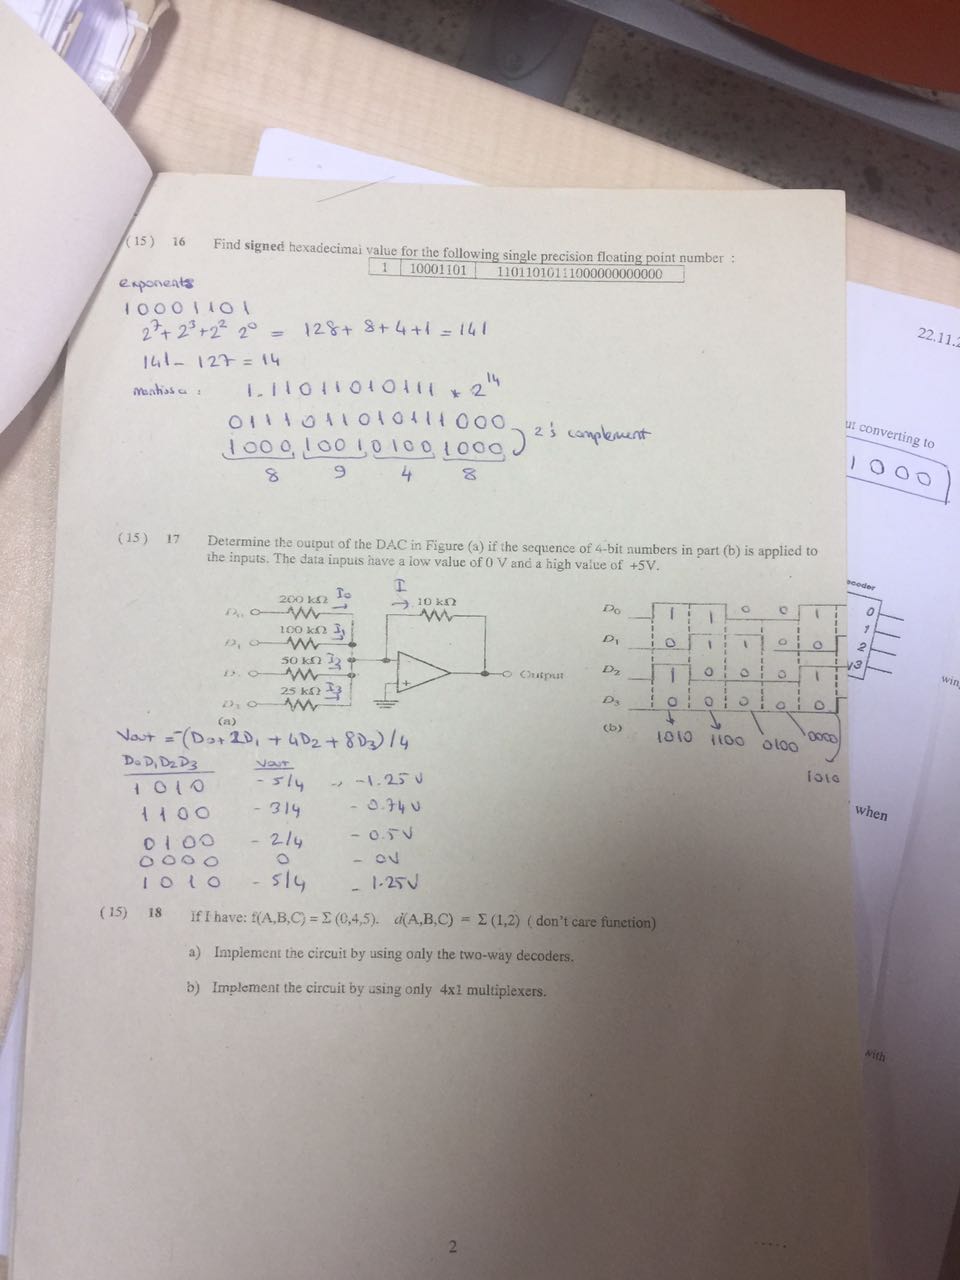 (15) 16 Find signed hexadecimal value for the following single precision floating point number :
1 10001101 11011010111000000000000
exponents
10001101
2⁷+2³+2² 2⁰ = 128+ 8+4+1 = 141
141 - 127 = 14
mantissa : 1.11011010111 * 2¹⁴
0111011010111000
1000 1001 0100 1000 2's complement
8 9 4 8
22.11.2
ut converting to
1000
(15) 17 Determine the output of the DAC in Figure (a) if the sequence of 4-bit numbers in part (b) is applied to
the inputs. The data inputs have a low value of 0 V and a high value of +5V.
200 kΩ I₀ I 10 kΩ
D₀
100 kΩ I₁
D₁
50 kΩ I₂
D.
25 kΩ I₃
D₃
+
Output
(a)
D₀ 1 1 0 0 1
D₁ 0 1 1 0 0
D₂ 1 0 0 0 1
D₃ 0 0 0 0 0
(b) 1010 1100 0100 0000
1010
ecoder
0
1
2
3
win
Vout = -(D₀+2D₁ + 4D₂ + 8D₃)/4
D₀D₁D₂D₃ Vout
1010 - 5/4 → -1.25 V
1100 - 3/4 - 0.74 V
0100 - 2/4 - 0.5 V
0000 0 - 0V
1010 - 5/4 - 1.25V
when
(15) 18 If I have: f(A,B,C) = Σ (0,4,5). d(A,B,C) = Σ (1,2) ( don't care function)
a) Implement the circuit by using only the two-way decoders.
b) Implement the circuit by using only 4x1 multiplexers.
with
2